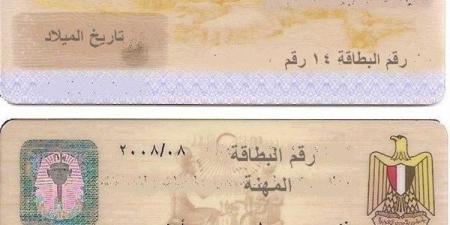 تاريخ الميلاد
رقم البطاقة ١٤ رقم
رقم البطاقة ٢٠٠٨/٠٨
المهنة